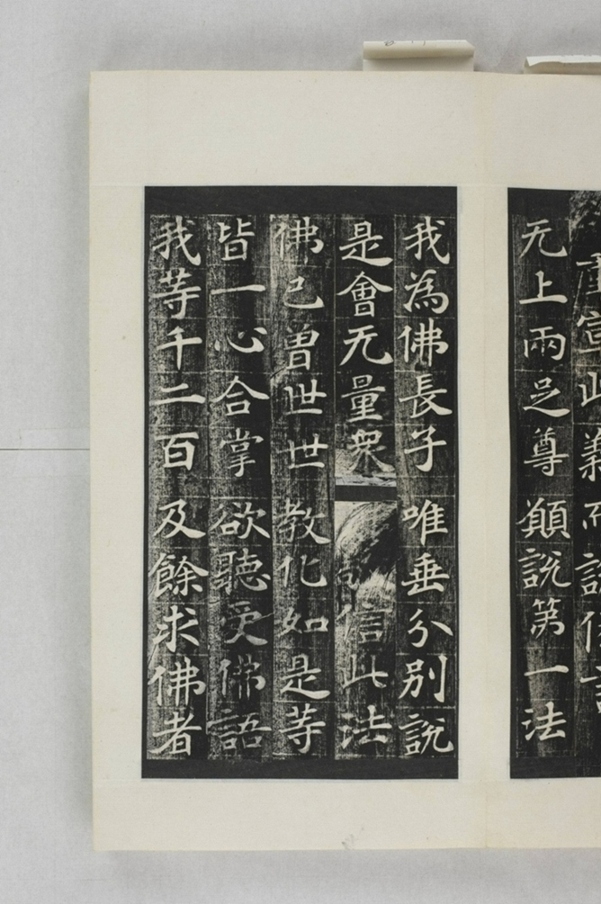 宣此義而說偈言
无上兩足尊 願說第一法
我為佛長子 唯垂分別說
是會无量衆 信此法
佛已曾世世 教化如是等
皆一心合掌 欲聽受佛語
我等千二百 及餘求佛者